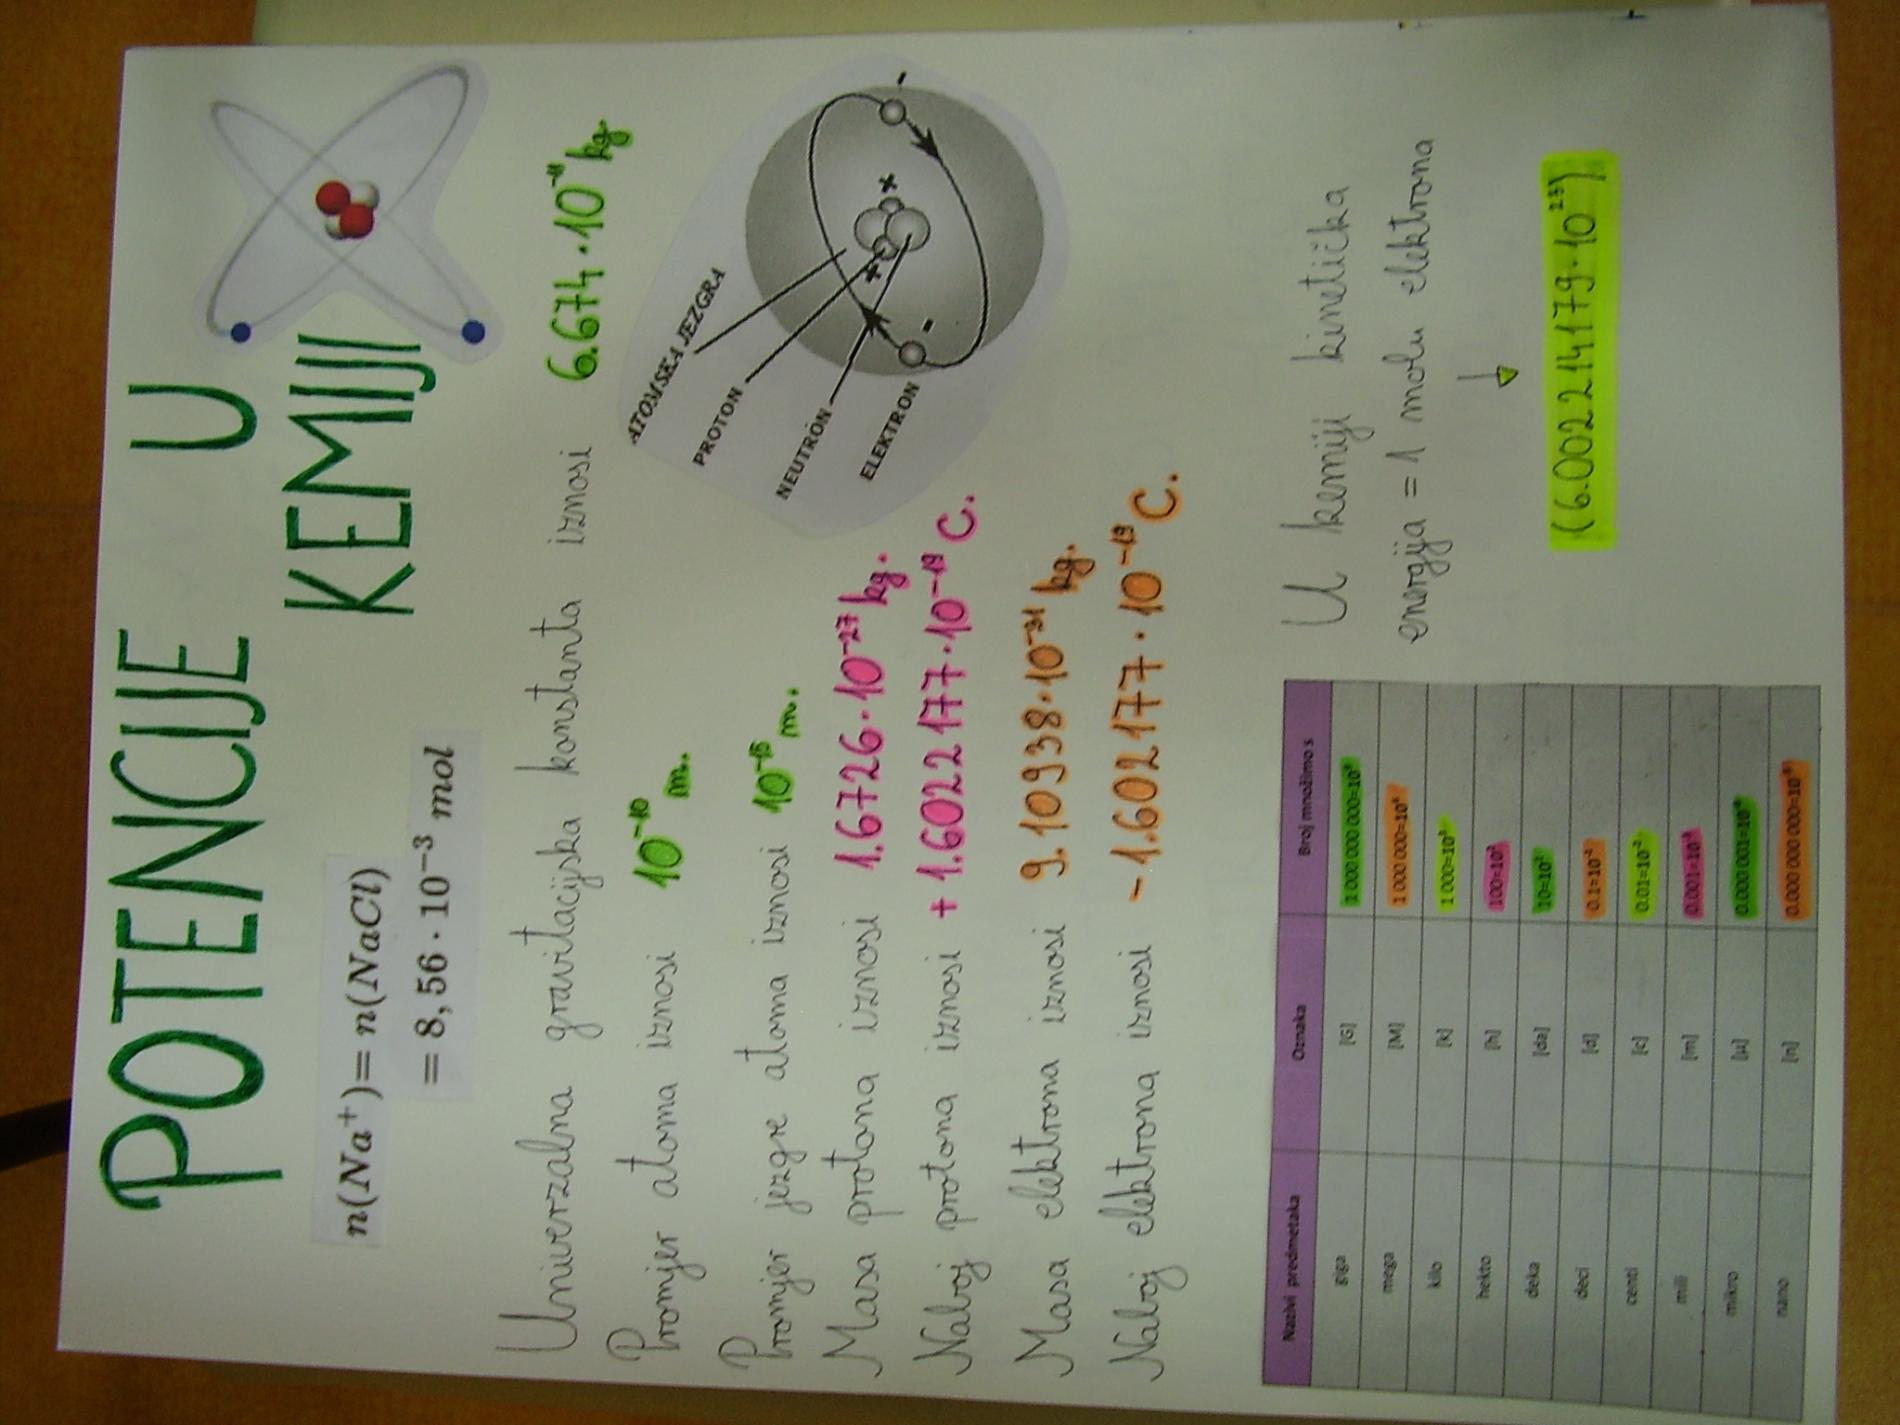 POTENCIJE U
KEMIJI
n(Na⁺)= n(NaCl)
= 8, 56 · 10⁻³ mol
Univerzalna gravitacijska konstanta iznosi 6.674·10⁻¹¹ kg.
Promjer atoma iznosi 10⁻¹⁰ m.
Promjer jezgre atoma iznosi 10⁻¹⁵ m.
Masa protona iznosi 1.6726·10⁻²⁷ kg.
Naboj protona iznosi +1.6022177·10⁻¹⁹ C.
Masa elektrona iznosi 9.10938·10⁻³¹ kg.
Naboj elektrona iznosi -1.602177·10⁻¹⁹ C.
ATOMSKA JEZGRA
PROTON
NEUTRON
ELEKTRON
+
+
-
-
Nazivi predmetaka Oznaka Broj množimo s
giga [G] 1 000 000 000=10⁹
mega [M] 1 000 000=10⁶
kilo [k] 1 000=10³
hekto [h] 100=10²
deka [da] 10=10¹
deci [d] 0.1=10⁻¹
centi [c] 0.01=10⁻²
mili [m] 0.001=10⁻³
mikro [μ] 0.000 001=10⁻⁶
nano [n] 0.000 000 000=10⁻⁹
U kemiji kinetička
energija = 1 molu elektrona
(6.002214179·10²³)